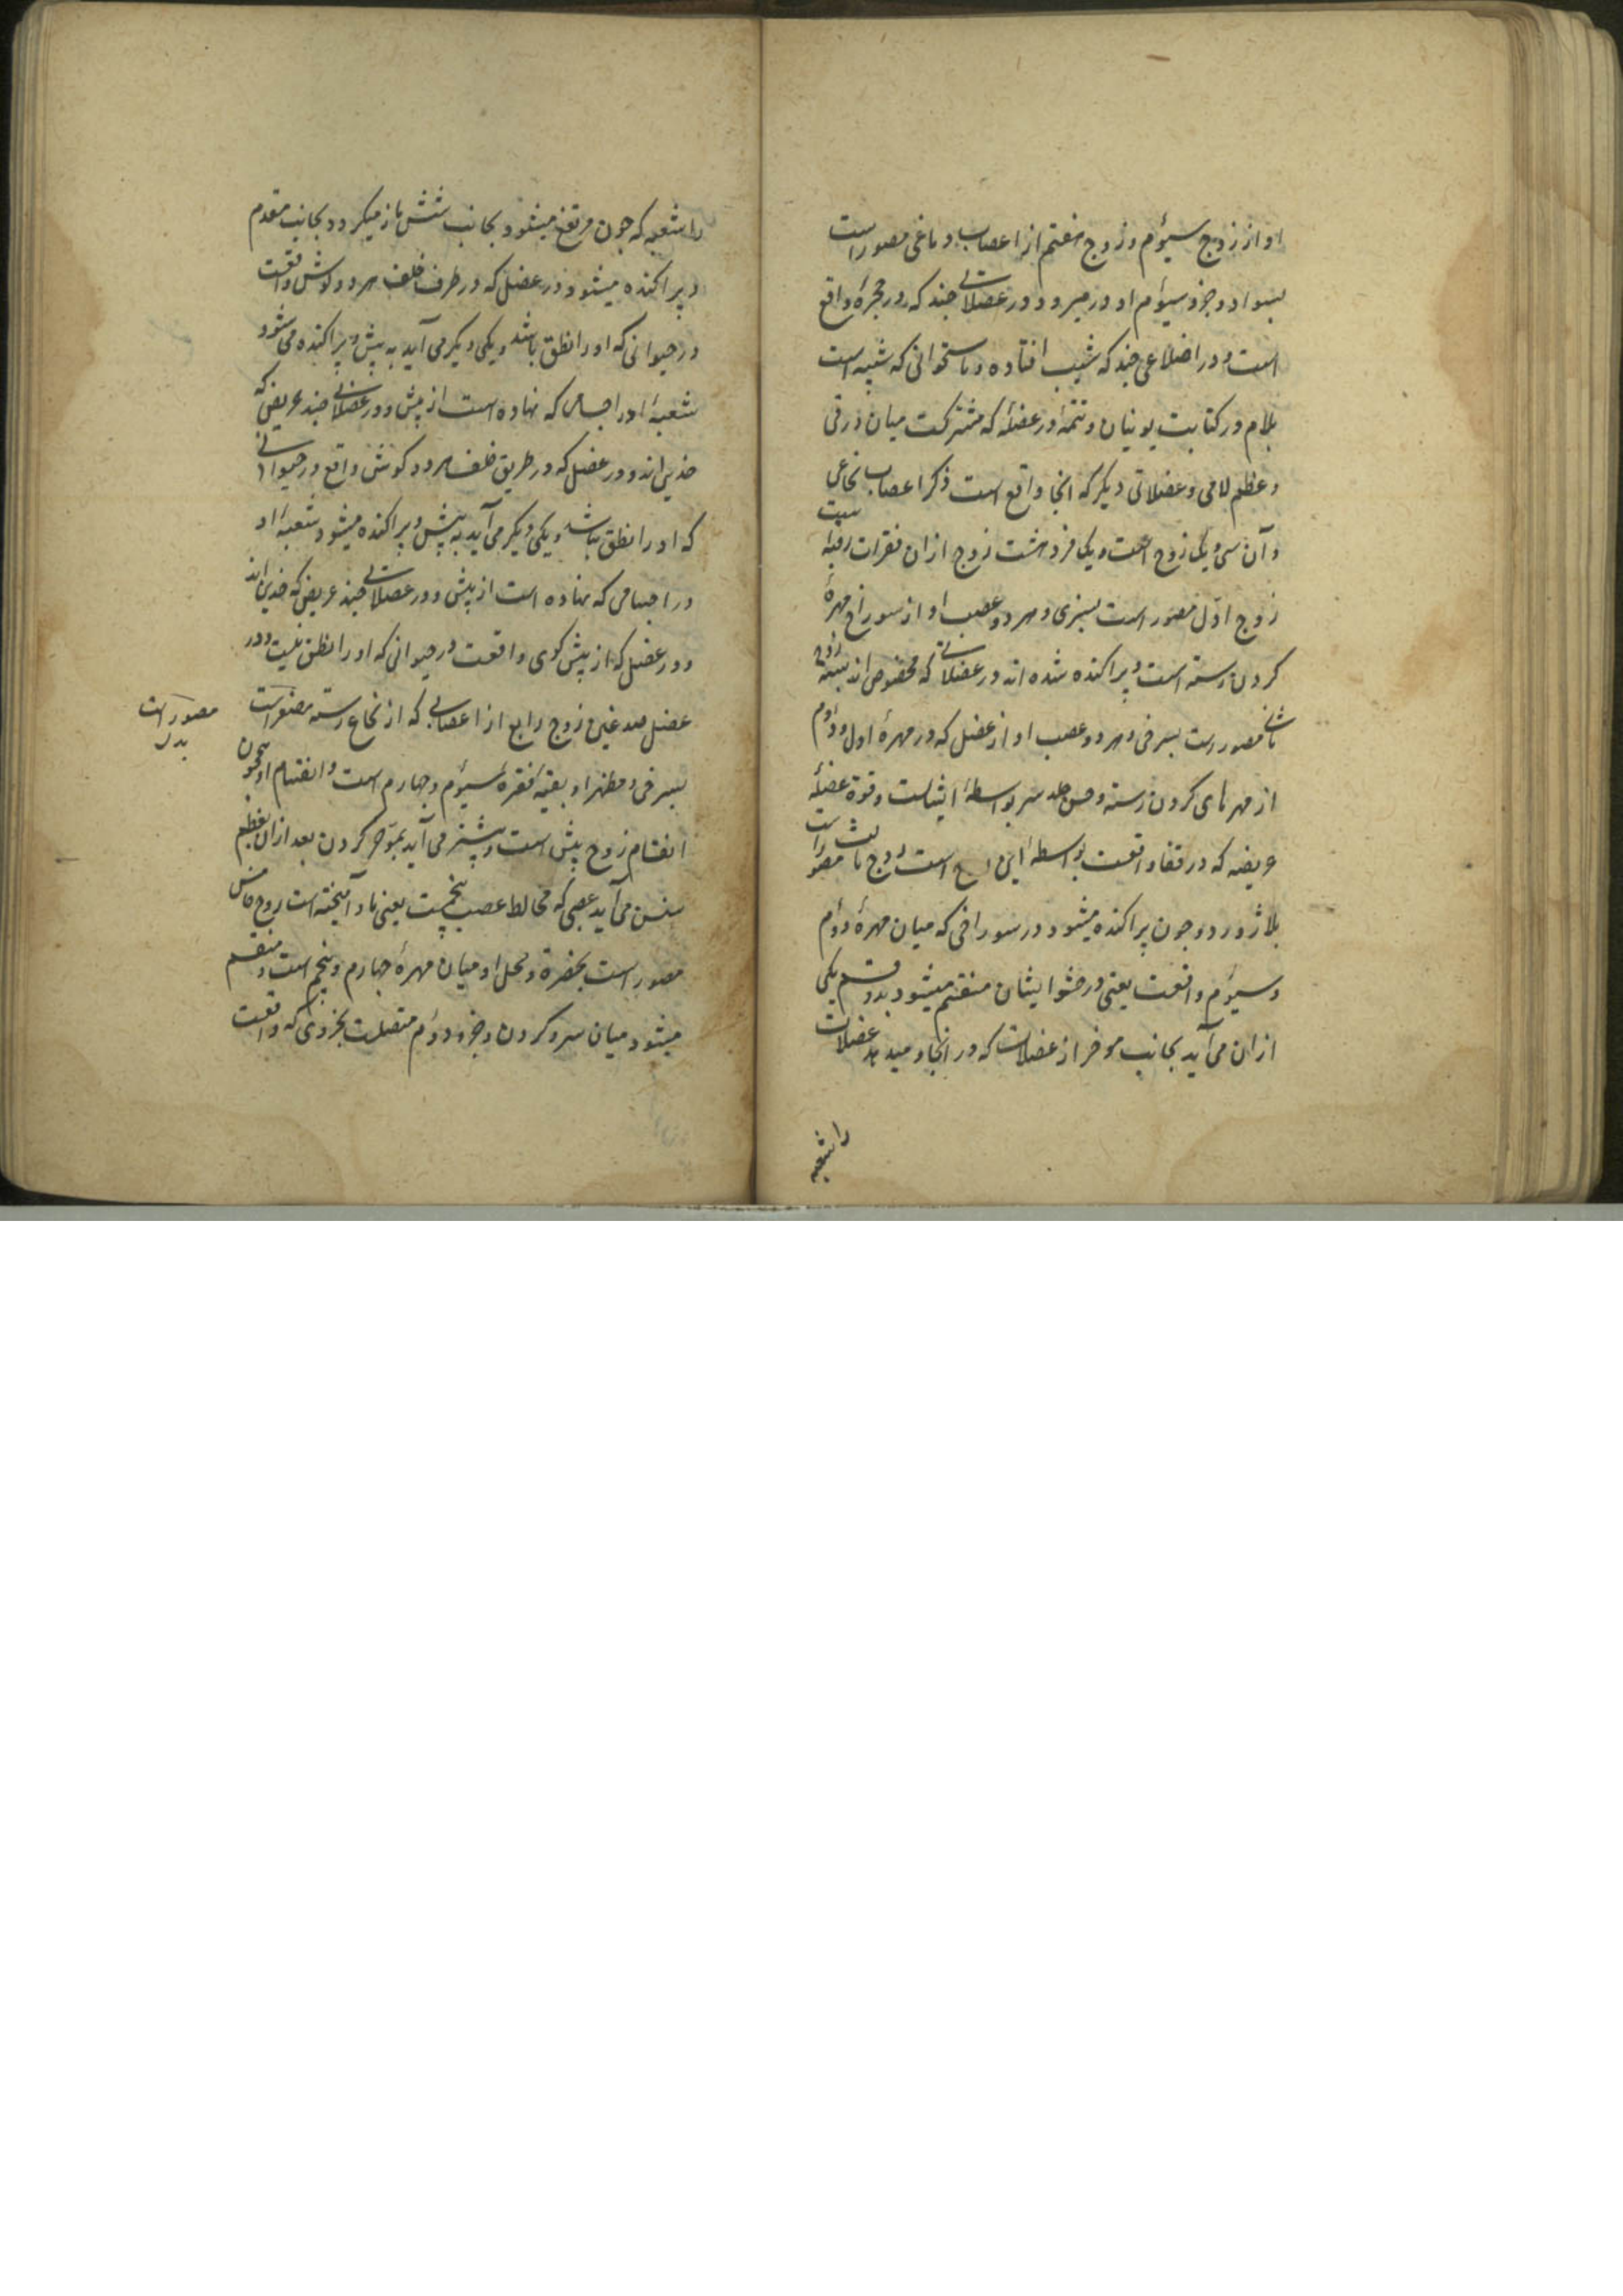 او از زوج سیوم و زوج هفتم از اعصاب دماغی مصور است
بسواد و جزو سیوم او در میرود در عضلاتی چند که در حجره واقع
است و در اضلاعی چند که شیب افتاده و باستخوانی که شبیه است
بلام در کتابت یونیان و تتمه او در عضله که مشترکست میان درقی
و عظم لامی و عضلاتی دیگر که آنجا واقع است ذکر اعصاب نخاعی
و آن سی و یک زوج است و یک فرد هشت زوج از آن فقرات رقبه است
زوج اول مصور است بسبزی و هر دو عصب او از سوراخ مهره
کردن رسته است و پراکنده شده اند در عضلاتی که مخصوص اند بسته زوج
ثانی مصور است بسرخی و هر دو عصب او از عضل که در مهره اول و دوم
از مهرهای کردن رسته و حس جلد سر بواسطه ایشانست و قوة عضله
عریضه که در قفا واقعست بواسطه این است زوج ثالث مصور است
بلاژورد و چون پراکنده میشود در سوراخی که میان مهره دوم
و سیوم واقعست یعنی در حشو ایشان منقسم میشود بدو قسم یکی
از ان می آید بجانب موخر از عضلات که در آنجا و میدهد عضلات
را شعبه
را شعبه که چون مرتفع میشود بجانب شش باز میکردد بجانب مقدم
و پراکنده میشود در عضل که در طرف خلف هر دو کوش واقعست
در حیوانی که او را نطق باشد و یکی دیگر می آید به پیش و پراکنده می شود
شعبه او در اجسامی که نهاده است از پیش و در عضلاتی چند عریض که
خدین اند و در عضل که در طریق خلف هر دو کوش واقع در حیوانی
که او را نطق نباشد و یکی دیگر می آید به پیش و پراکنده میشود شعبه او
در اجسامی که نهاده است از پیش و در عضلاتی چند عریض که خدین اند
و در عضل که از پیش کوی واقعست در حیوانی که او را نطق نیست و در
عضل صدغین زوج رابع از اعصابی که از نخاع رسته مصور است
مصور است بدل
بسرخی و مظهر او بقیه فقره سیوم و چهارم است و انقسام او همچون
انقسام زوج پیش است و پیشتر می آید بموخر کردن بعد از آن بعظم
سنسن می آید عصبی که مخالط عصب پنجمست یعنی با او آمیخته است زوج خامس
مصور است بخضرة و محل او میان مهره چهارم و پنجم است و منقسم
میشود میان سر و کردن و جزو دوم متصلست بجزوی که واقعست